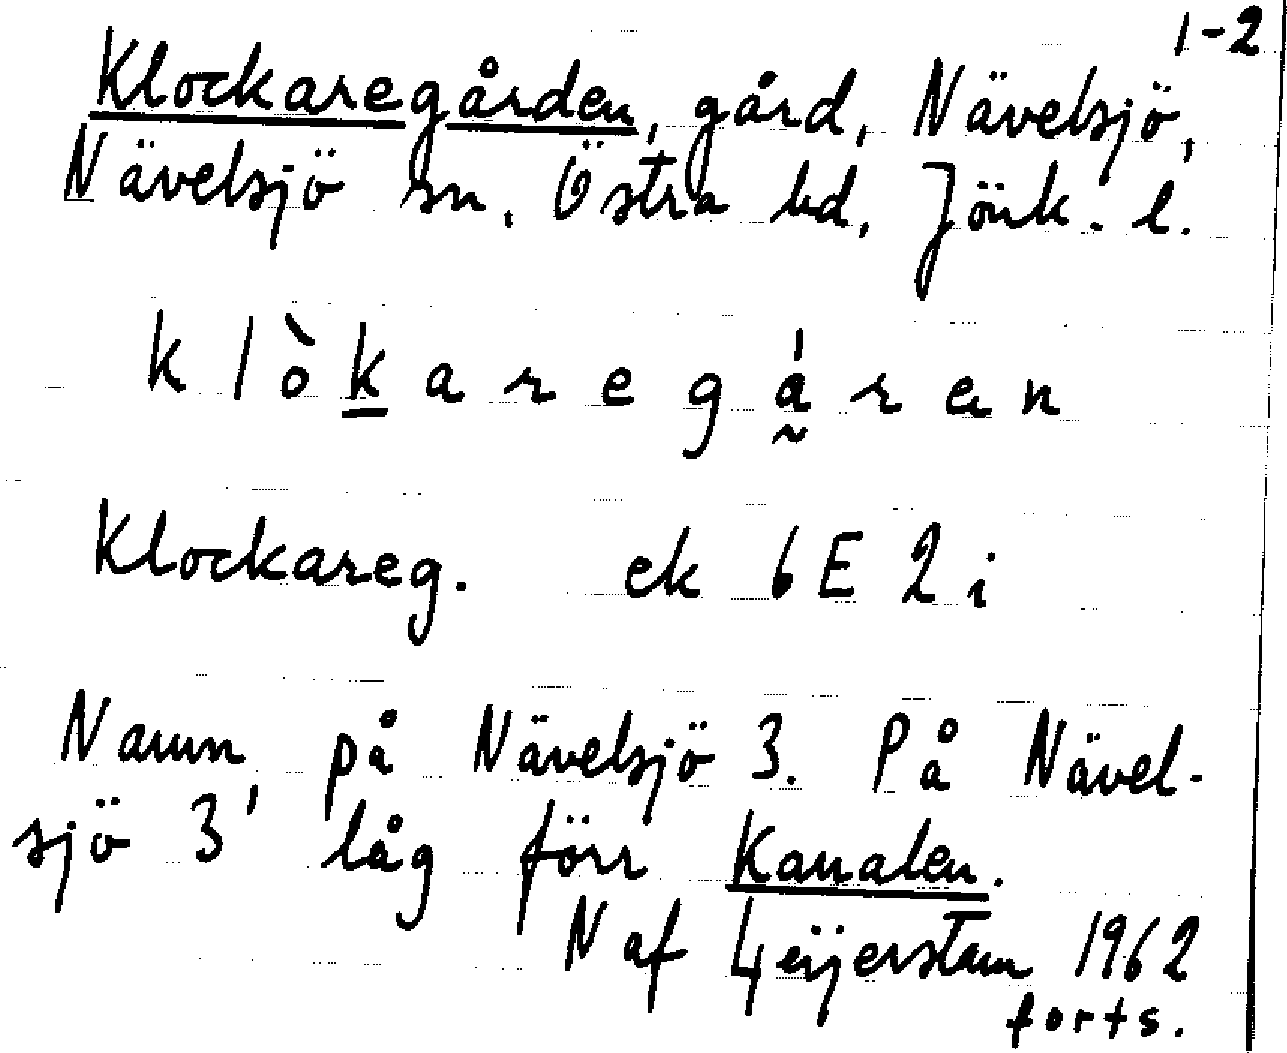 1-2
Klockaregården, gård, Nävelsjö,
Nävelsjö sn, Östra hd, Jönk. l.
klòkaregá̰ren
Klockareg. ek 6E 2i
Namn på Nävelsjö 3. På Nävel-
sjö 3' låg förr Kanalen.
N af Geijerstam 1962
forts.